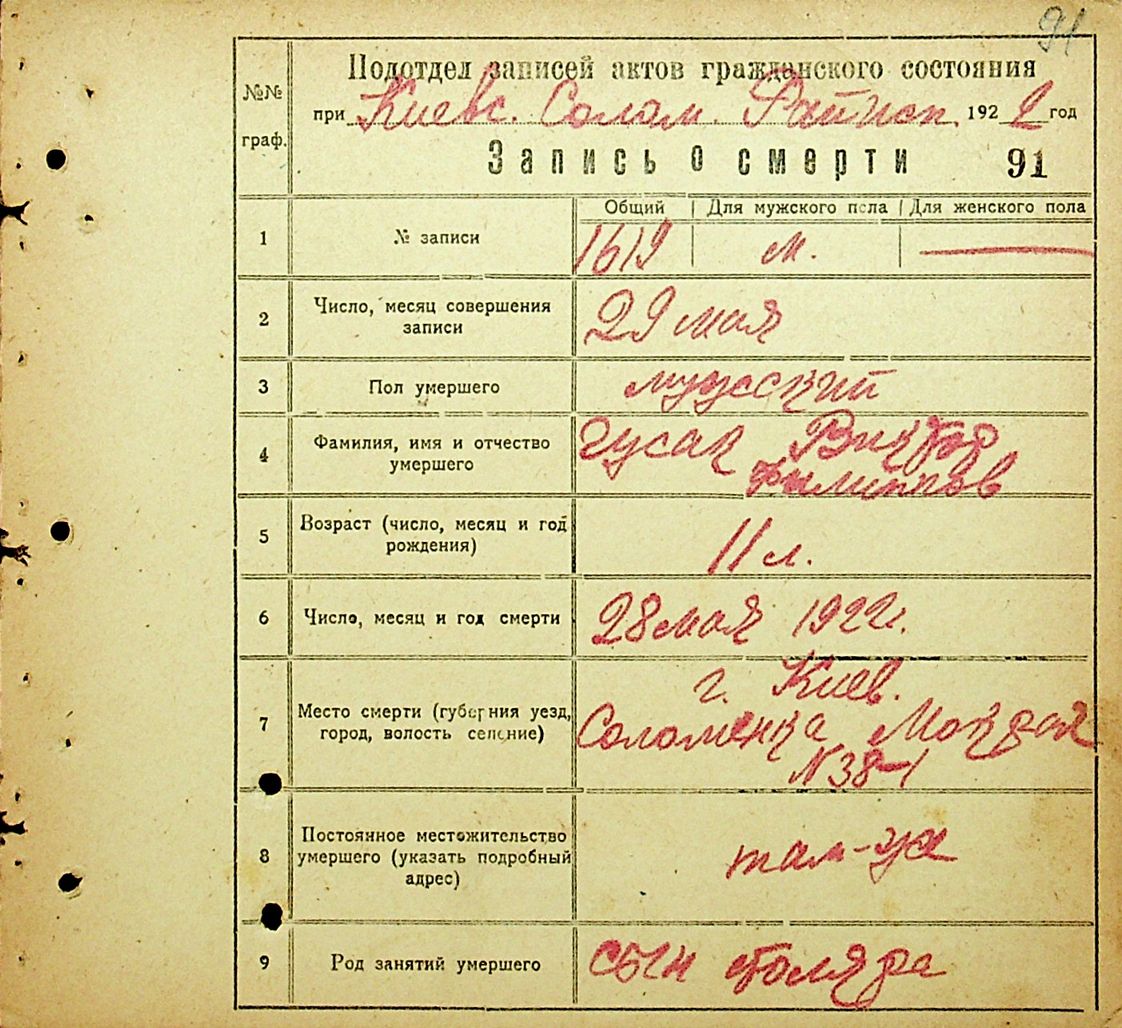 91
Подотдел записей актов гражданского состояния
№№ граф.
при Киевс. Солом. Райисп. 1922 год
Запись о смерти 91
Общий Для мужского пола Для женского пола
1 № записи 1619 м. —
2 Число, месяц совершения
записи
29 мая
3 Пол умершего мужский
4 Фамилия, имя и отчество
умершего
Гусак Виктор
Филиппов
5 Возраст (число, месяц и год
рождения)
11 л.
6 Число, месяц и год смерти 28 мая 1922 г.
7 Место смерти (губерния уезд,
город, волость селение)
г. Киев.
Соломенка Мокрая
N 38-1
8 Постоянное местожительство
умершего (указать подробный
адрес)
там-же
9 Род занятий умершего сын столяра